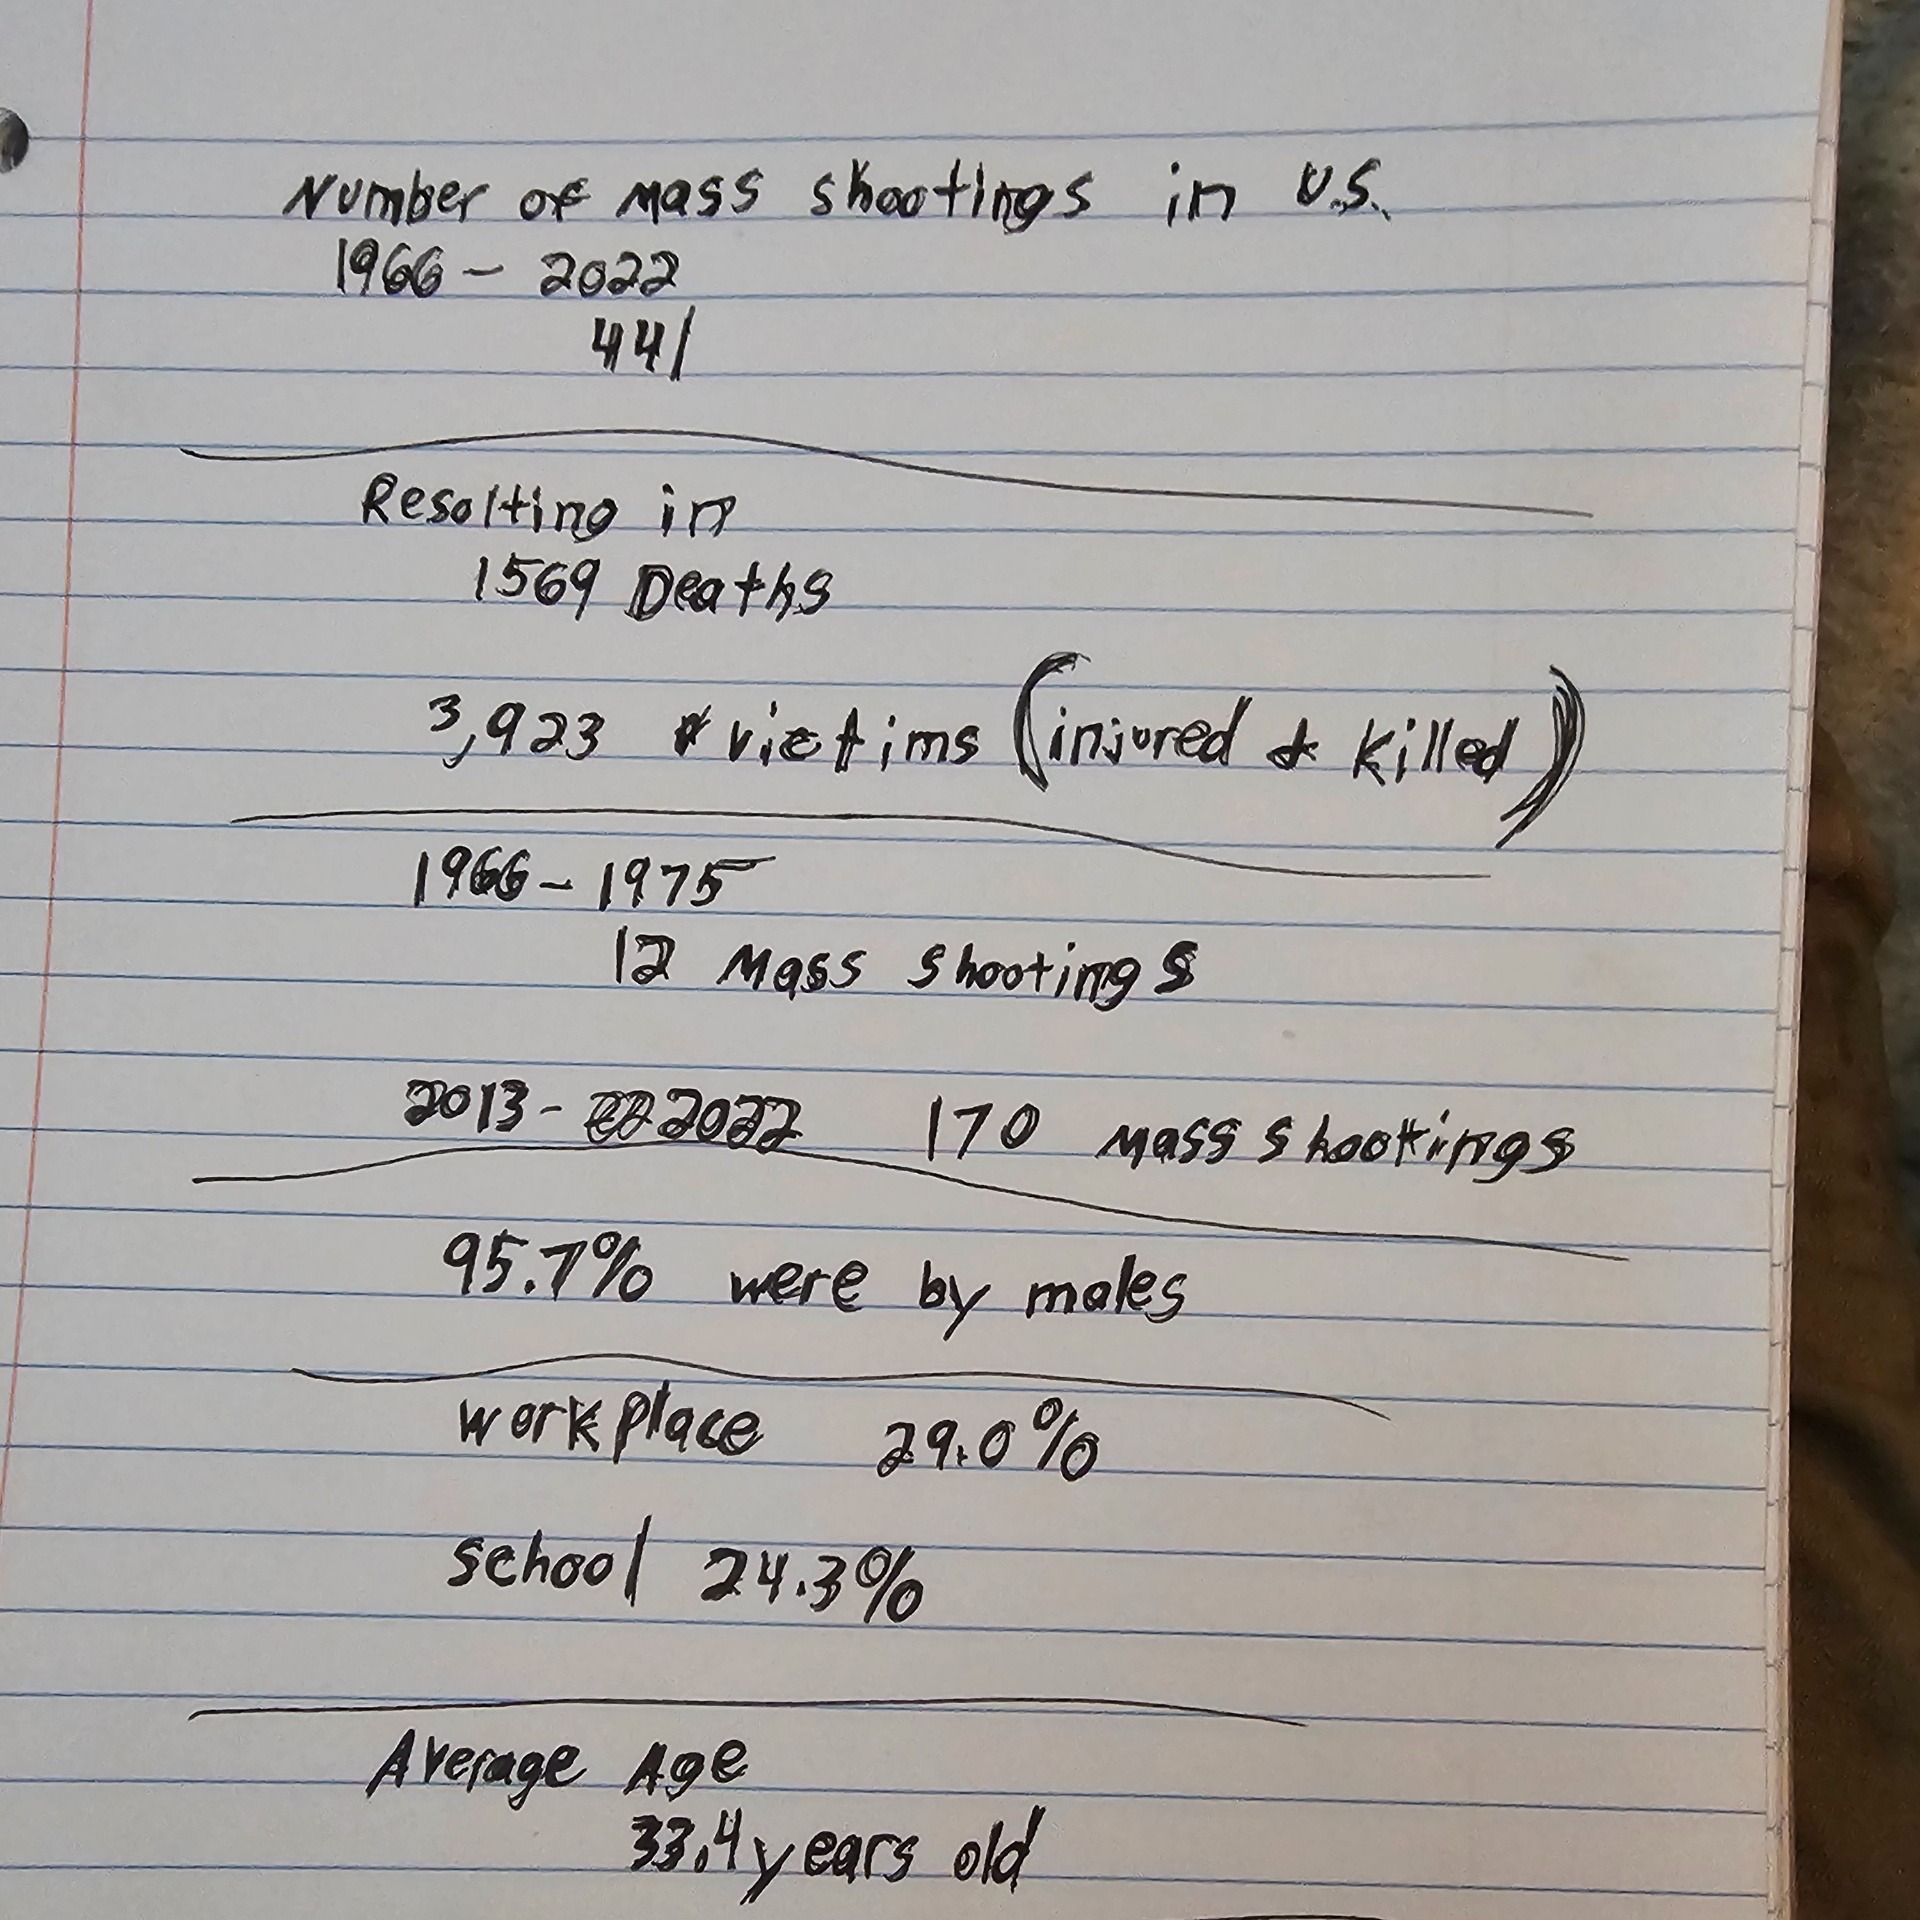 Number of Mass shootings in U.S.
1966 - 2022
441
Resolting in
1569 Deaths
3,923 victims (injured & killed)
1966 - 1975
12 Mass shootings
2013 - 2022 170 Mass shootings
95.7% were by males
workplace 29.0%
school 24.3%
Average Age
33.4 years old